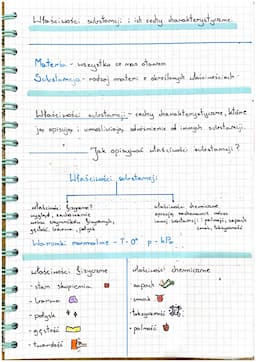 Właściwości substancji i ich cechy charakterystyczne.
Materia - wszystko co nas otacza
Substancja - rodzaj materii o określonych właściwościach
Właściwości substancji - cechy charakterystyczne, które
ją opisują i umożliwiają odróżnienie od innych substancji.
Jak opisywać właściwości substancji?
Właściwości substancji
właściwości fizyczne
wygląd, zachowanie
gęstość, barwa, połysk
właściwości chemiczne
smak, toksyczność
Warunki normalne - T - 0° p - hPa
właściwości fizyczne
- stan skupienia
- barwa
- połysk
- gęstość
- twardość
właściwości chemiczne
- zapach
- smak
- toksyczność
- palność